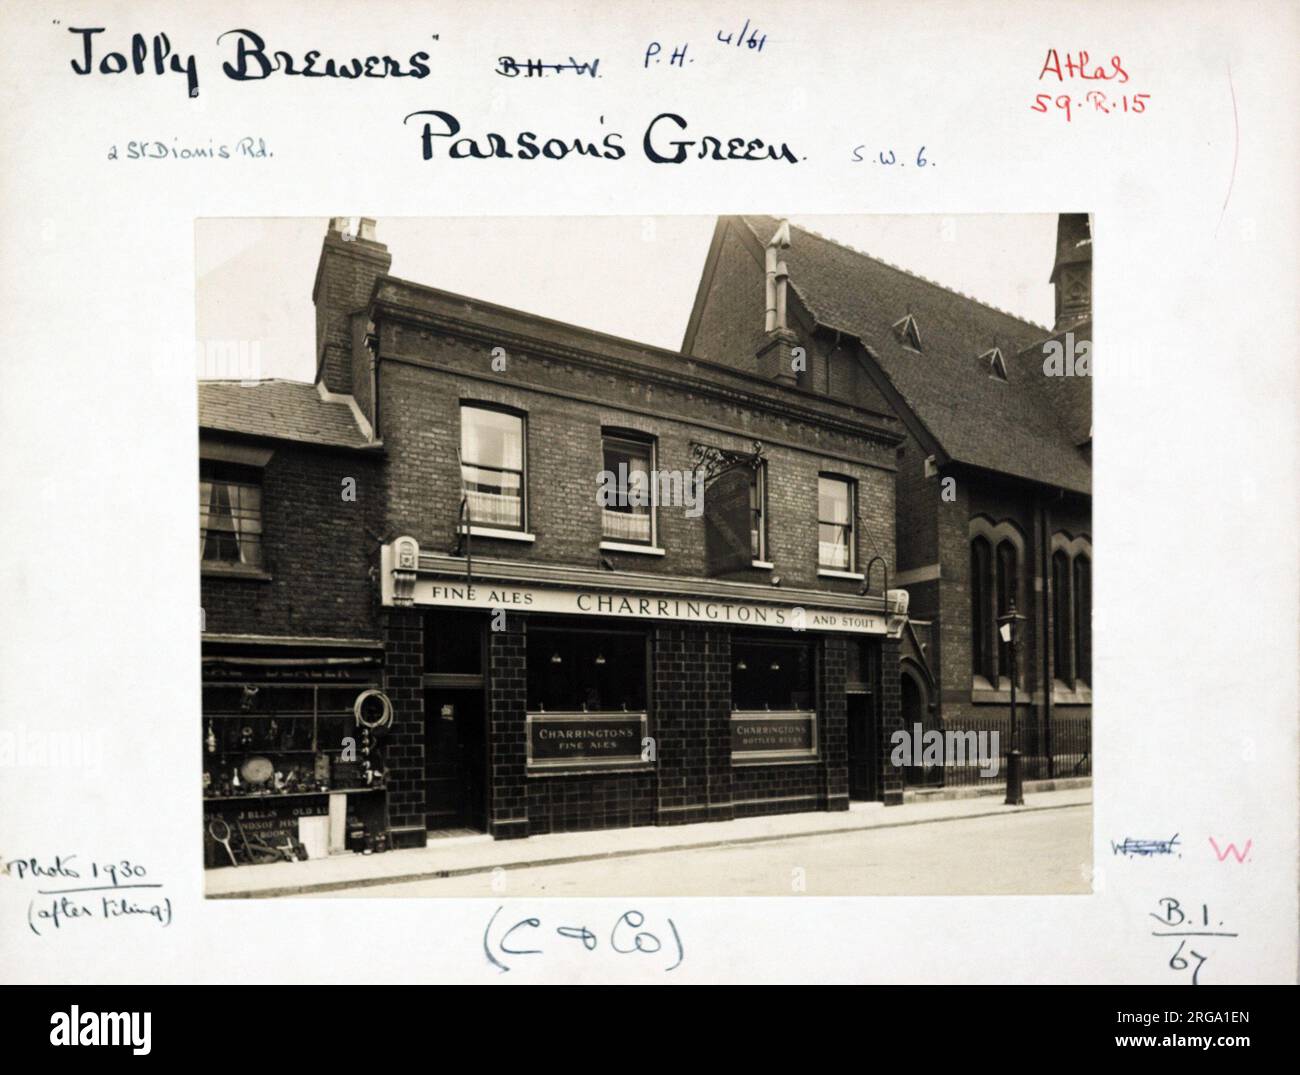 "Jolly Brewers" B.H.&W. P.H. 4/61
Atlas
59.R.15
2 St Dionis Rd. Parson's Green. S.W.6.
FINE ALES CHARRINGTON'S AND STOUT
DEALER
CHARRINGTON'S
FINE ALES
CHARRINGTON'S
BOTTLED BEERS
J BLISS OLD
Photo 1930
(after tiling)
W.
(C & Co)
B.1.
67
alamy
Image ID: 2RGA1EN
www.alamy.com